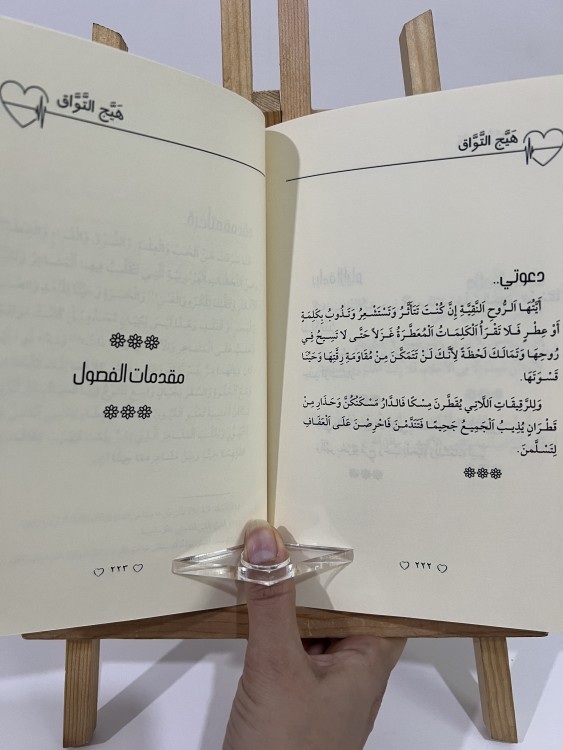 هَيَّج التَّوَّاق
دعوتي..
أَيَّتُهَا الرُّوحِ النَّقِيَّة إِنَّ كُنْتَ تَتَأَثَّرُ وَتَسْتَشْعِرُ وَتَذُوبُ بِكَلِمَةٍ
أَوْ عِطْرٍ فَلَا تَقْرَأُ الْكَلِمَاتُ الْمُعَطَّرَةُ غَزَلاً حَتَّى لَا تَسِيحُ فِي
رُوحِهَا وَتَمَالَكَ لَحْظَةً لِأَنَّكَ لَنْ تَتَمَكَّنَ مِنْ مُقَاوَمَةِ رِقَّتِهَا وَحَيْنَا
قَسْوَتَهَا.
وَلِلرَّقِيقَاتِ اللَّاتِي يُقَطَّرْنَ مِسْكًا فَالدَّارُ مَسْكَنُكُنَّ وَحَذَارِ مِنْ
قَطْرَانٍ يُذِيبُ الْجَمِيعُ جَحِيمًا فَتَنْدَمْنَ فَاحْرِصْنَ عَلَى الْعَفَافِ
لِتَسْلَمنَ.
٢٢٢
هَيَّج التَّوَّاق
مقدمات الفصول
٢٢٣